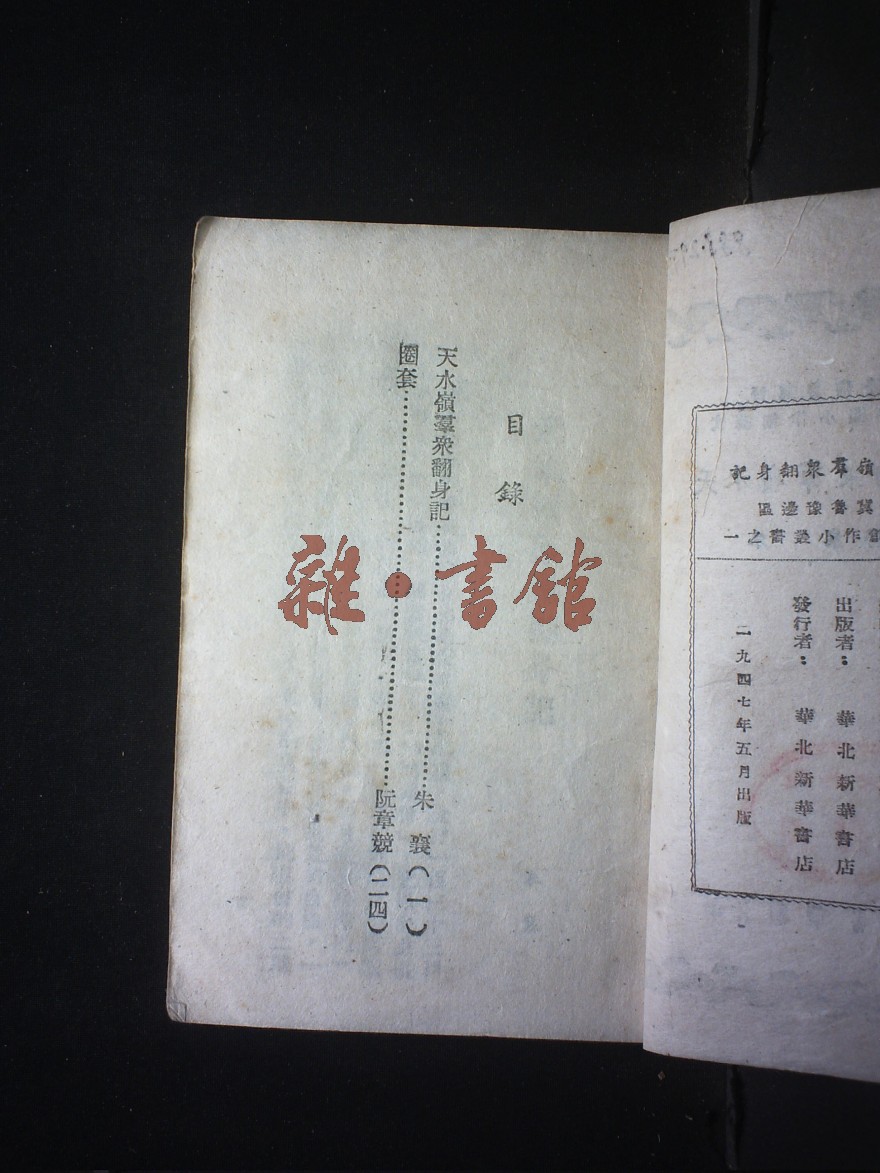 目錄
天水嶺羣衆翻身記……朱襄（一）
圈套……阮章競（二四）
雜·書館
嶺羣衆翻身記
冀魯豫邊區
創作小叢書之一
出版者：華北新華書店
發行者：華北新華書店
一九四七年五月出版